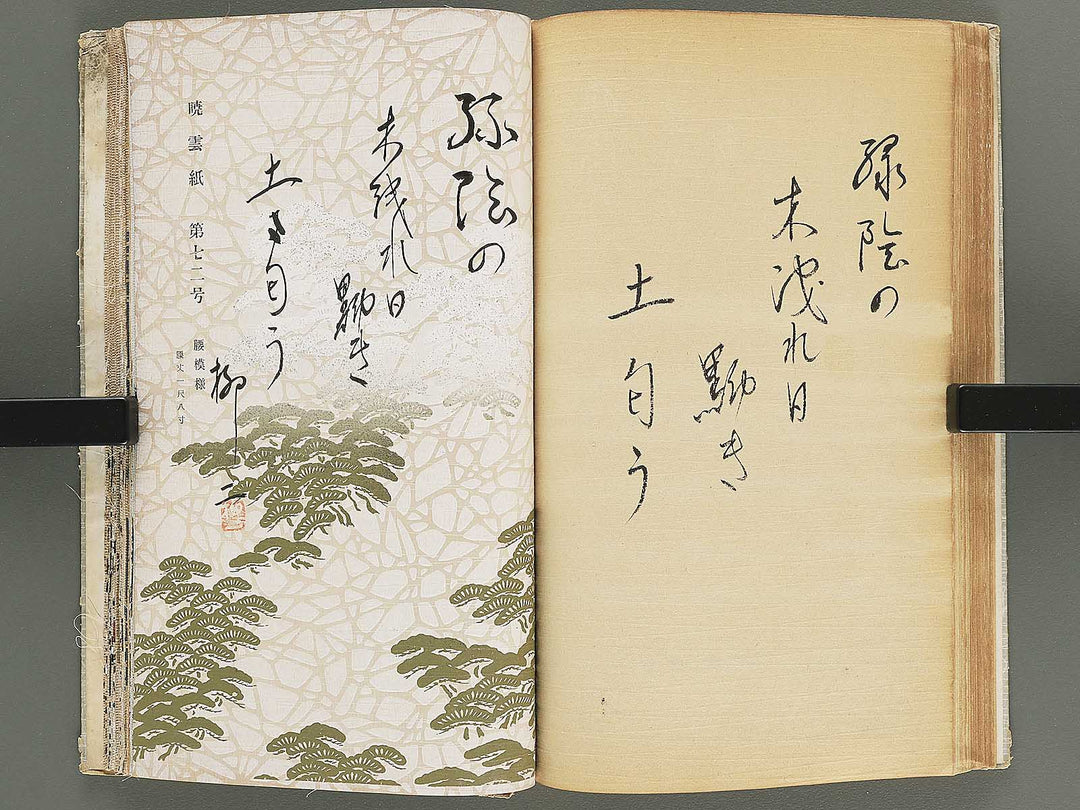 緑陰の
木洩れ日
動き
土匂う
緑陰の
木洩れ日
動き
土匂う
柳二
暁雲紙 第七二号
腰模様
腰丈一尺八寸